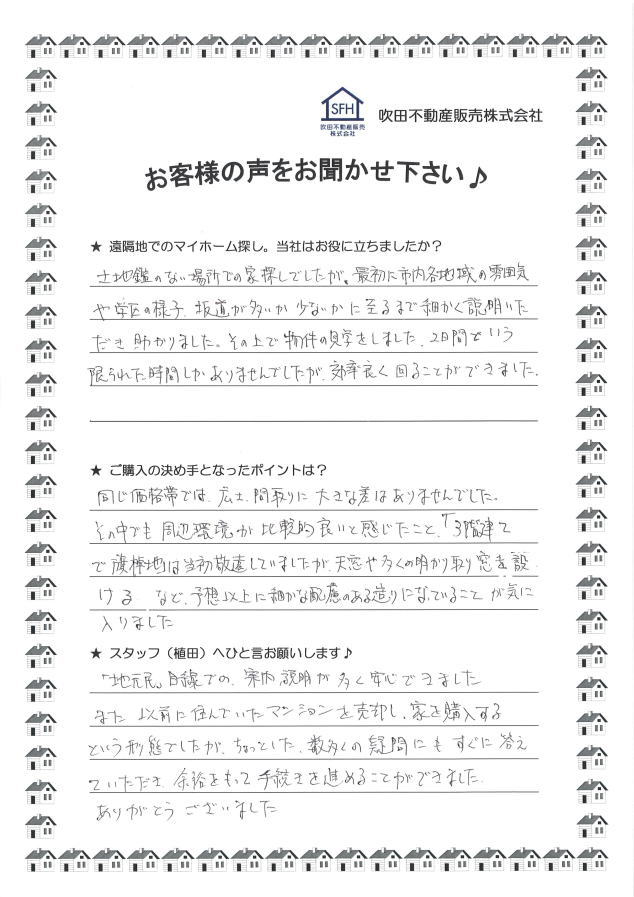 SFH
吹田不動産販売
株式会社
吹田不動産販売株式会社
お客様の声をお聞かせ下さい♪
★ 遠隔地でのマイホーム探し。当社はお役に立ちましたか？
土地鑑のない場所での家探しでしたが、最初に市内各地域の雰囲気
や学区の様子、坂道が多いか少ないかに至るまで細かく説明いた
だき助かりました。その上で物件の見学をしました。2日間という
限られた時間しかありませんでしたが、効率良く回ることができました。
★ ご購入の決め手となったポイントは？
同じ価格帯では、広さ、間取りに大きな差はありませんでした。
その中でも周辺環境が比較的良いと感じたこと、「3階建て
で旗棹地は当初敬遠していましたが、天窓や多くの明かり取り窓を設
ける など、予想以上に細かな配慮のある造りになっていることが気に
入りました
★ スタッフ（植田）へひと言お願いします♪
「地元民」目線での、案内、説明が多く安心できました
また 以前に住んでいたマンションを売却し、家を購入する
という形態でしたが、ちょっとした、数多くの疑問にもすぐに答え
ていただき、余裕をもって手続きを進めることができました。
ありがとうございました